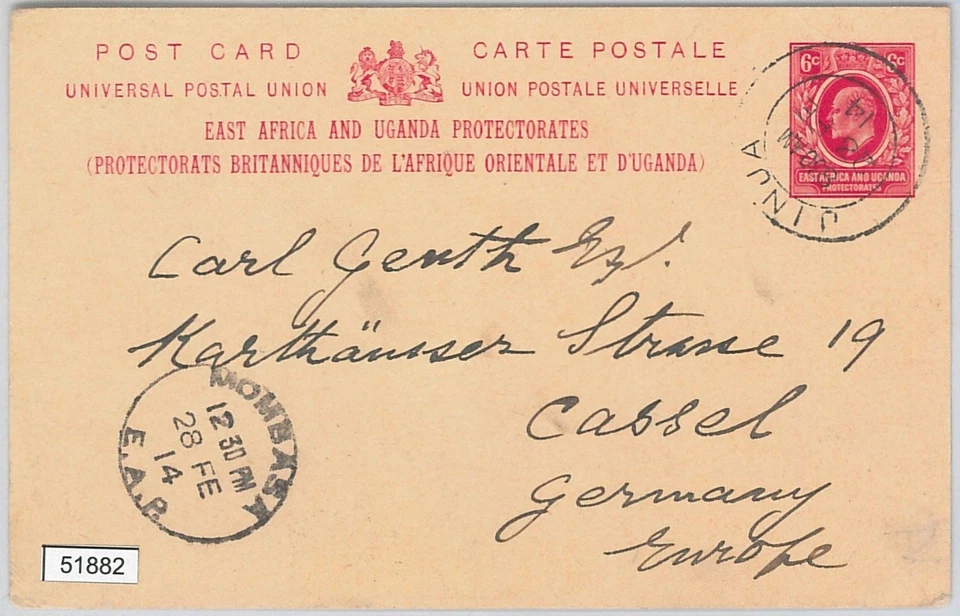 POST CARD
CARTE POSTALE
UNIVERSAL POSTAL UNION
UNION POSTALE UNIVERSELLE
EAST AFRICA AND UGANDA PROTECTORATES
(PROTECTORATS BRITANNIQUES DE L'AFRIQUE ORIENTALE ET D'UGANDA)
6c 6c
EAST AFRICA AND UGANDA
PROTECTORATES
JINJA
14
Carl Genth Esq.
Karthäuser Strasse 19
Cassel
Germany
Europe
MOMBASA
12 30 PM
28 FE
14
E.A.P.
51882